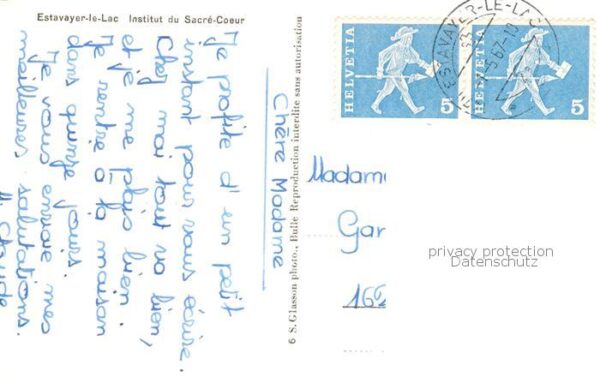 Estavayer-le-Lac Institut du Sacré-Coeur
Chère Madame
Je profite d'un petit
instant pour vous écrire.
Chez moi tout va bien,
et je me plais bien.
Je rentre à la maison
dans quinze jours.
Je vous envoie mes
meilleures salutations.
6 S. Glasson photo., Bulle Reproduction interdite sans autorisation
HELVETIA 5
HELVETIA 5
ESTAVAYER-LE-LAC
Madam
Gar
privacy protection
Datenschutz